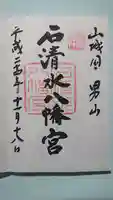 山城国 男山
石清水八幡宮
平成二十四年十一月十八日